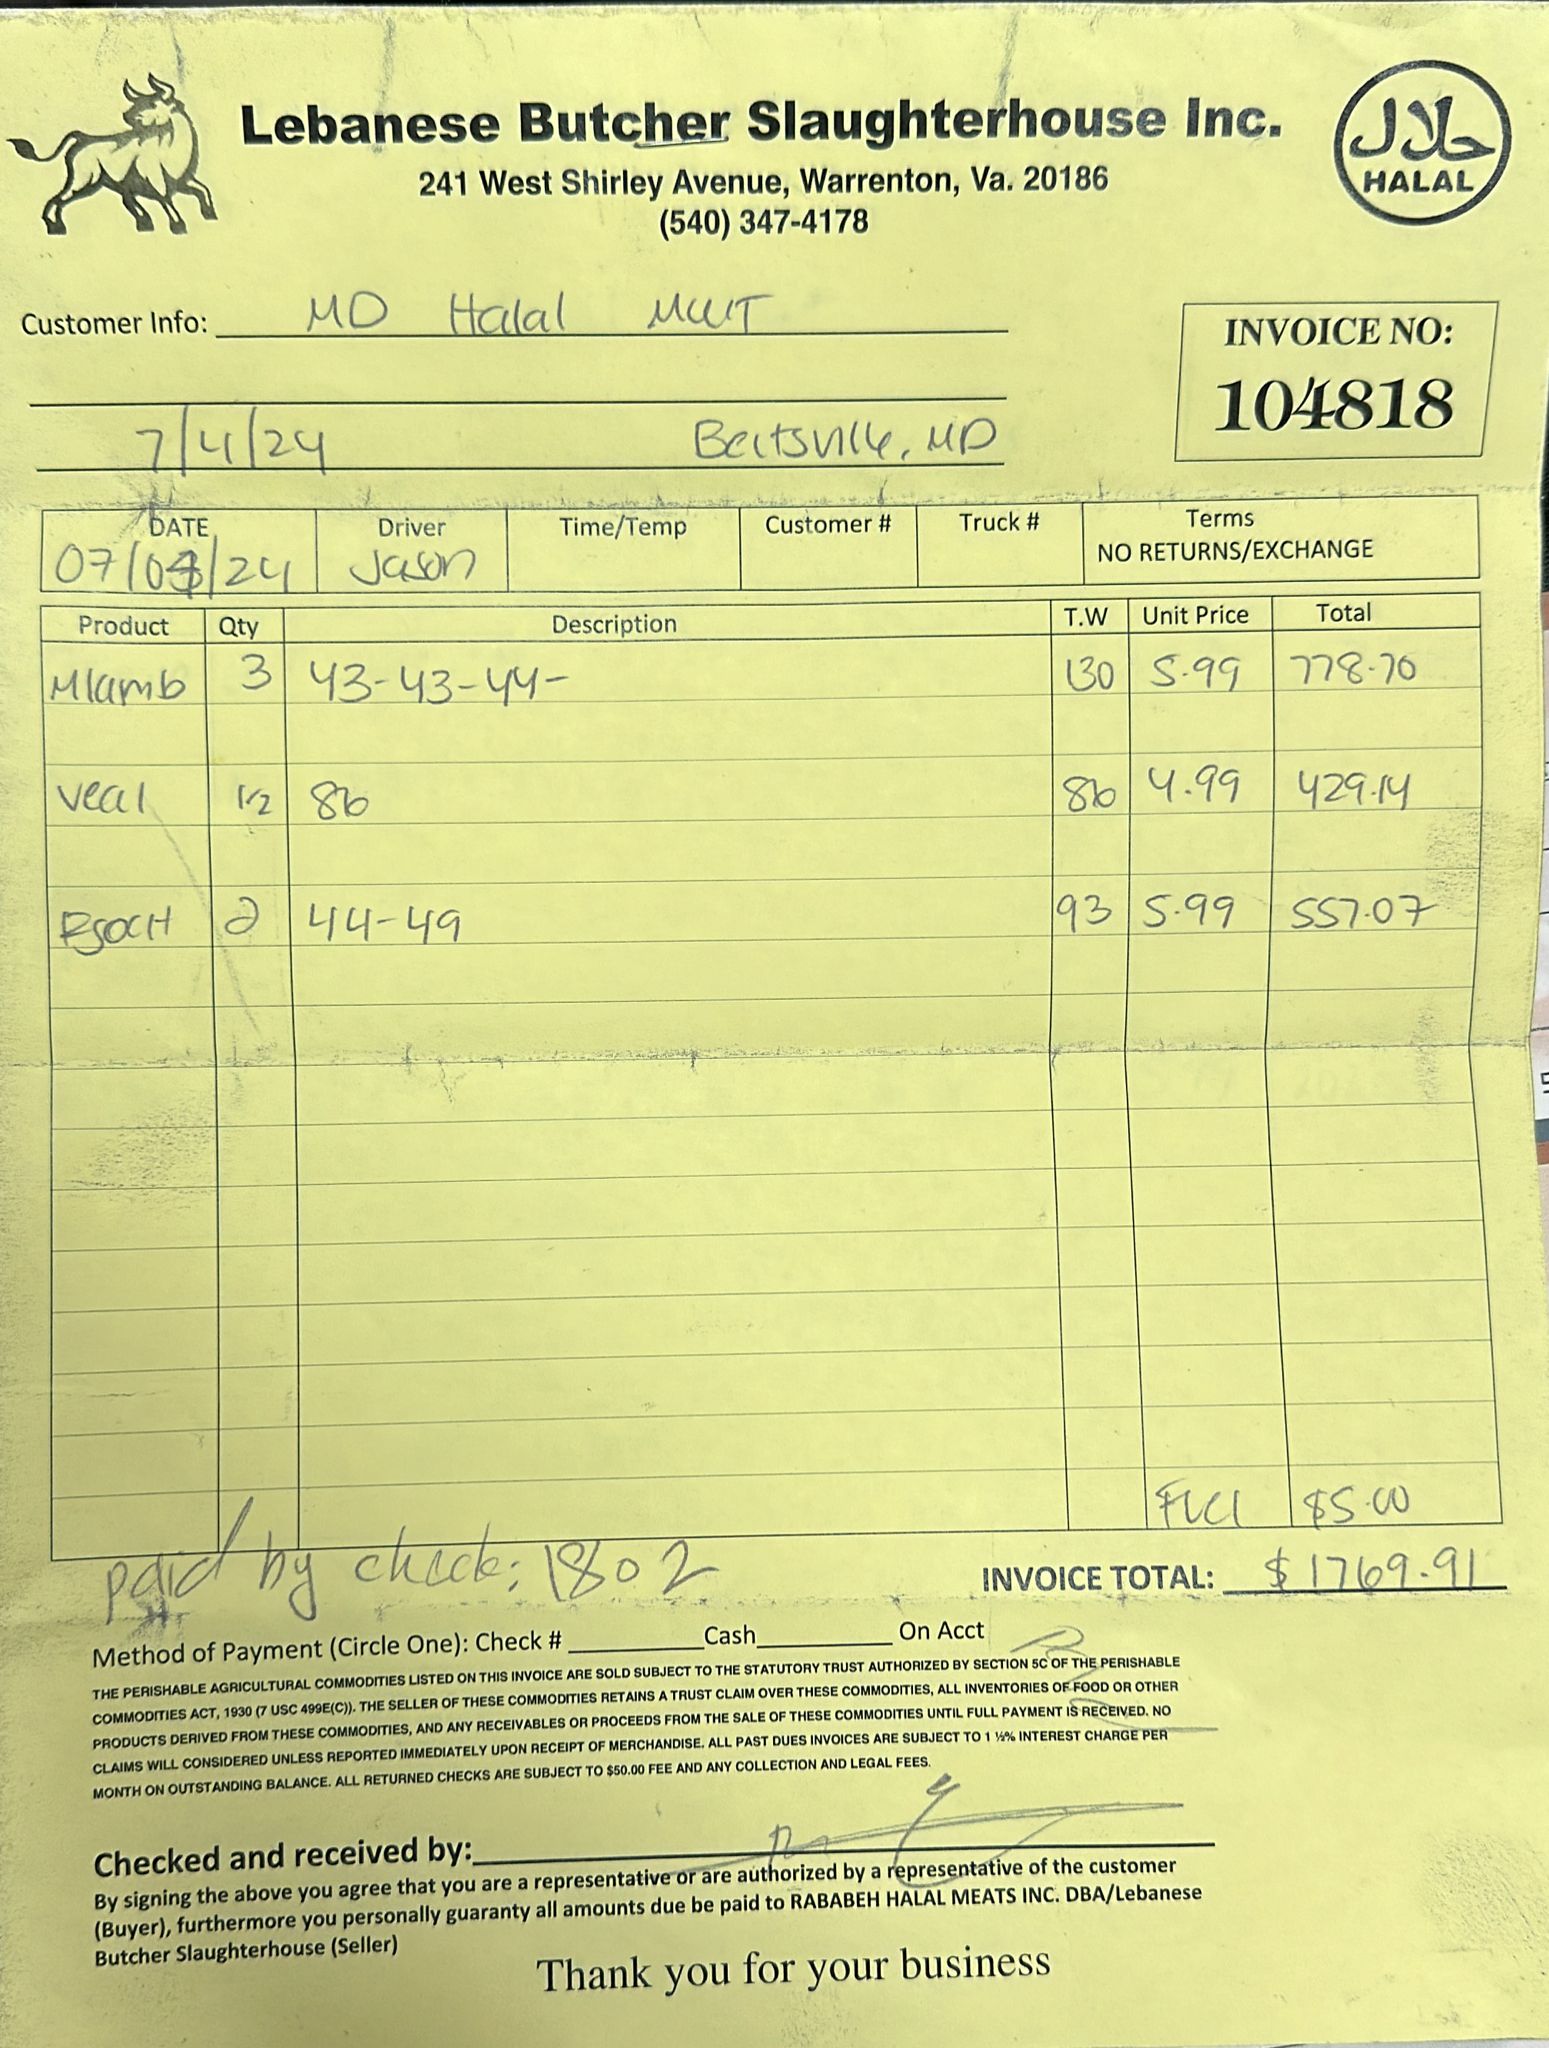 Lebanese Butcher Slaughterhouse Inc.
241 West Shirley Avenue, Warrenton, Va. 20186
(540) 347-4178
حلال
HALAL
Customer Info: MD Halal
INVOICE NO:
104818
7/4/24 Beltsville, MD
DATE Driver Time/Temp Customer # Truck # Terms
07/03/24 Jason NO RETURNS/EXCHANGE
Product Qty Description T.W Unit Price Total
Mlamb 3 43-43-44- 130 5.99 778.70
Veal 1/2 86 86 4.99 429.14
2 44-49 93 5.99 557.07
Fuel $5.00
paid by check: 1802
INVOICE TOTAL: $1769.91
Method of Payment (Circle One): Check # Cash On Acct
THE PERISHABLE AGRICULTURAL COMMODITIES LISTED ON THIS INVOICE ARE SOLD SUBJECT TO THE STATUTORY TRUST AUTHORIZED BY SECTION 5C OF THE PERISHABLE
COMMODITIES ACT, 1930 (7 USC 499E(C)). THE SELLER OF THESE COMMODITIES RETAINS A TRUST CLAIM OVER THESE COMMODITIES, ALL INVENTORIES OF FOOD OR OTHER
PRODUCTS DERIVED FROM THESE COMMODITIES, AND ANY RECEIVABLES OR PROCEEDS FROM THE SALE OF THESE COMMODITIES UNTIL FULL PAYMENT IS RECEIVED. NO
CLAIMS WILL CONSIDERED UNLESS REPORTED IMMEDIATELY UPON RECEIPT OF MERCHANDISE. ALL PAST DUES INVOICES ARE SUBJECT TO 1 ½% INTEREST CHARGE PER
MONTH ON OUTSTANDING BALANCE. ALL RETURNED CHECKS ARE SUBJECT TO $50.00 FEE AND ANY COLLECTION AND LEGAL FEES.
Checked and received by:
By signing the above you agree that you are a representative or are authorized by a representative of the customer
(Buyer), furthermore you personally guaranty all amounts due be paid to RABABEH HALAL MEATS INC. DBA/Lebanese
Butcher Slaughterhouse (Seller)
Thank you for your business